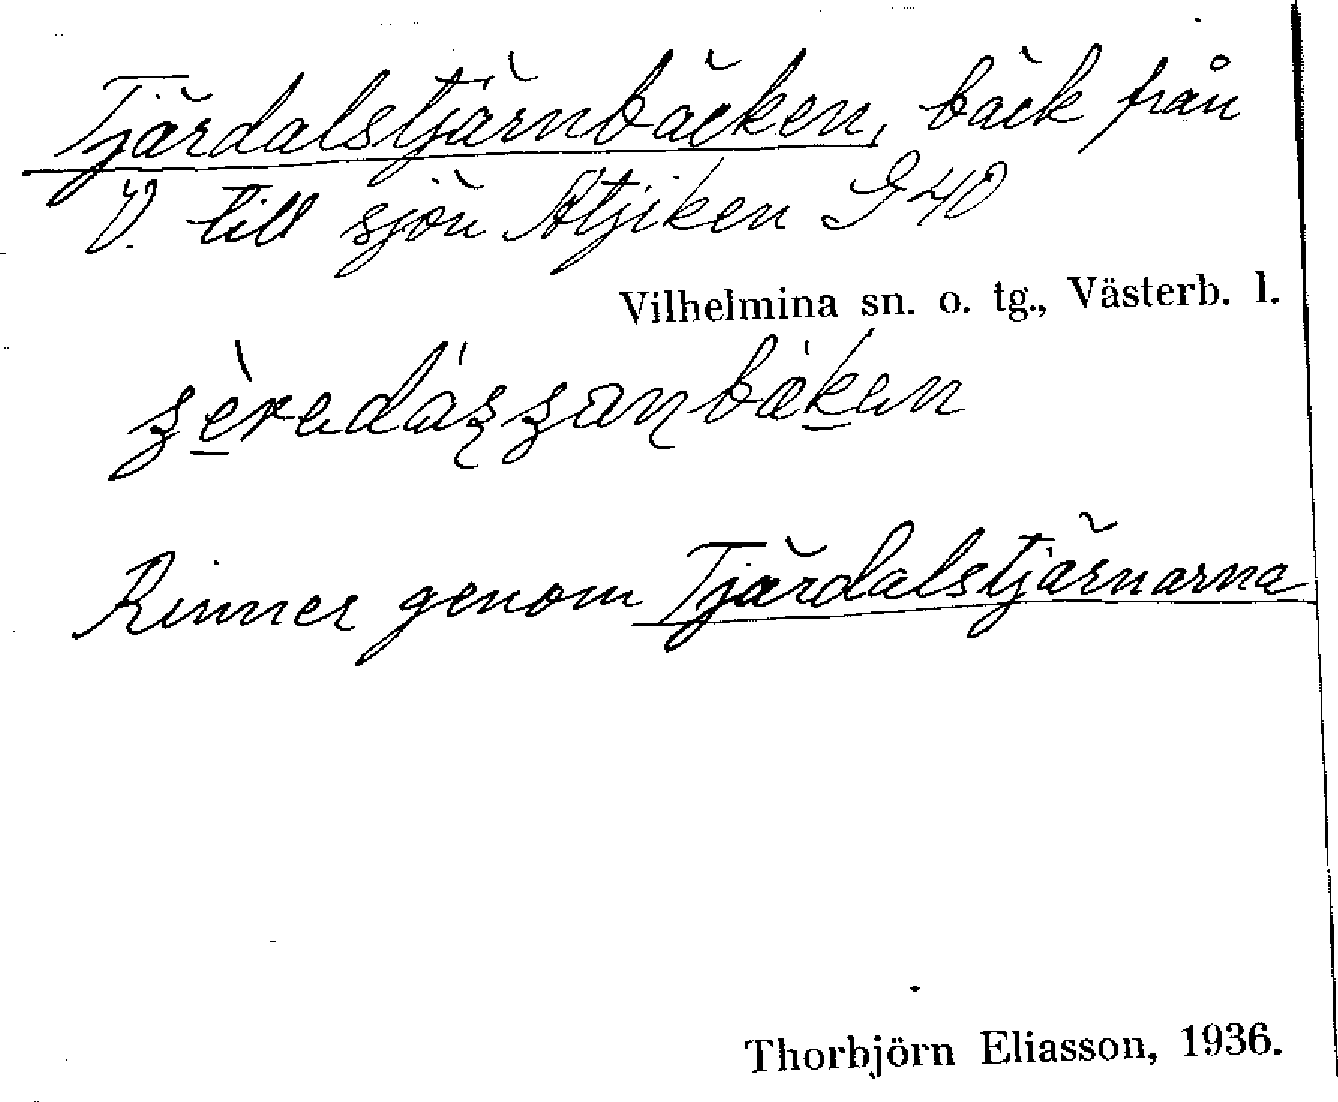 Tjärdalstjärnbäcken, bäck från
V. till sjön Ätjiken G40
Vilhelmina sn. o. tg., Västerb. l.
Rinner genom Tjärdalstjärnarna
Thorbjörn Eliasson, 1936.